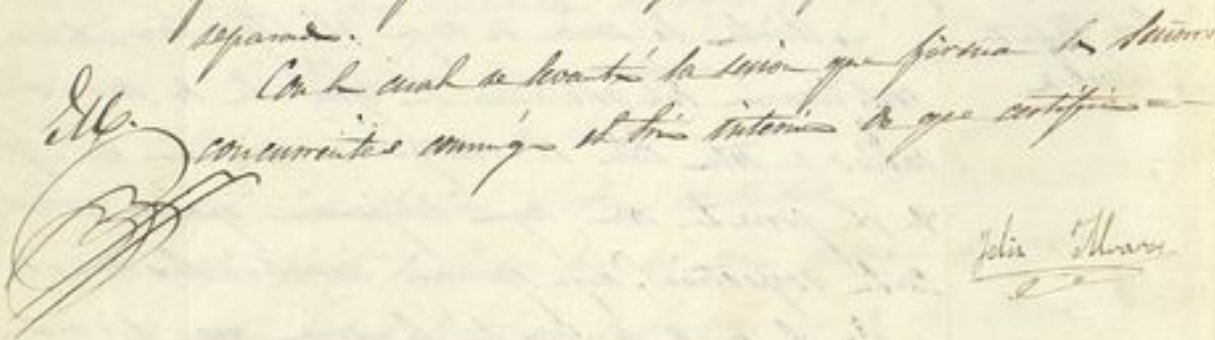 separado.
Con lo cual se levantó la sesión que firman los Señores
concurrentes conmigo el Srio interino de que certifico =
Felix Alvarez